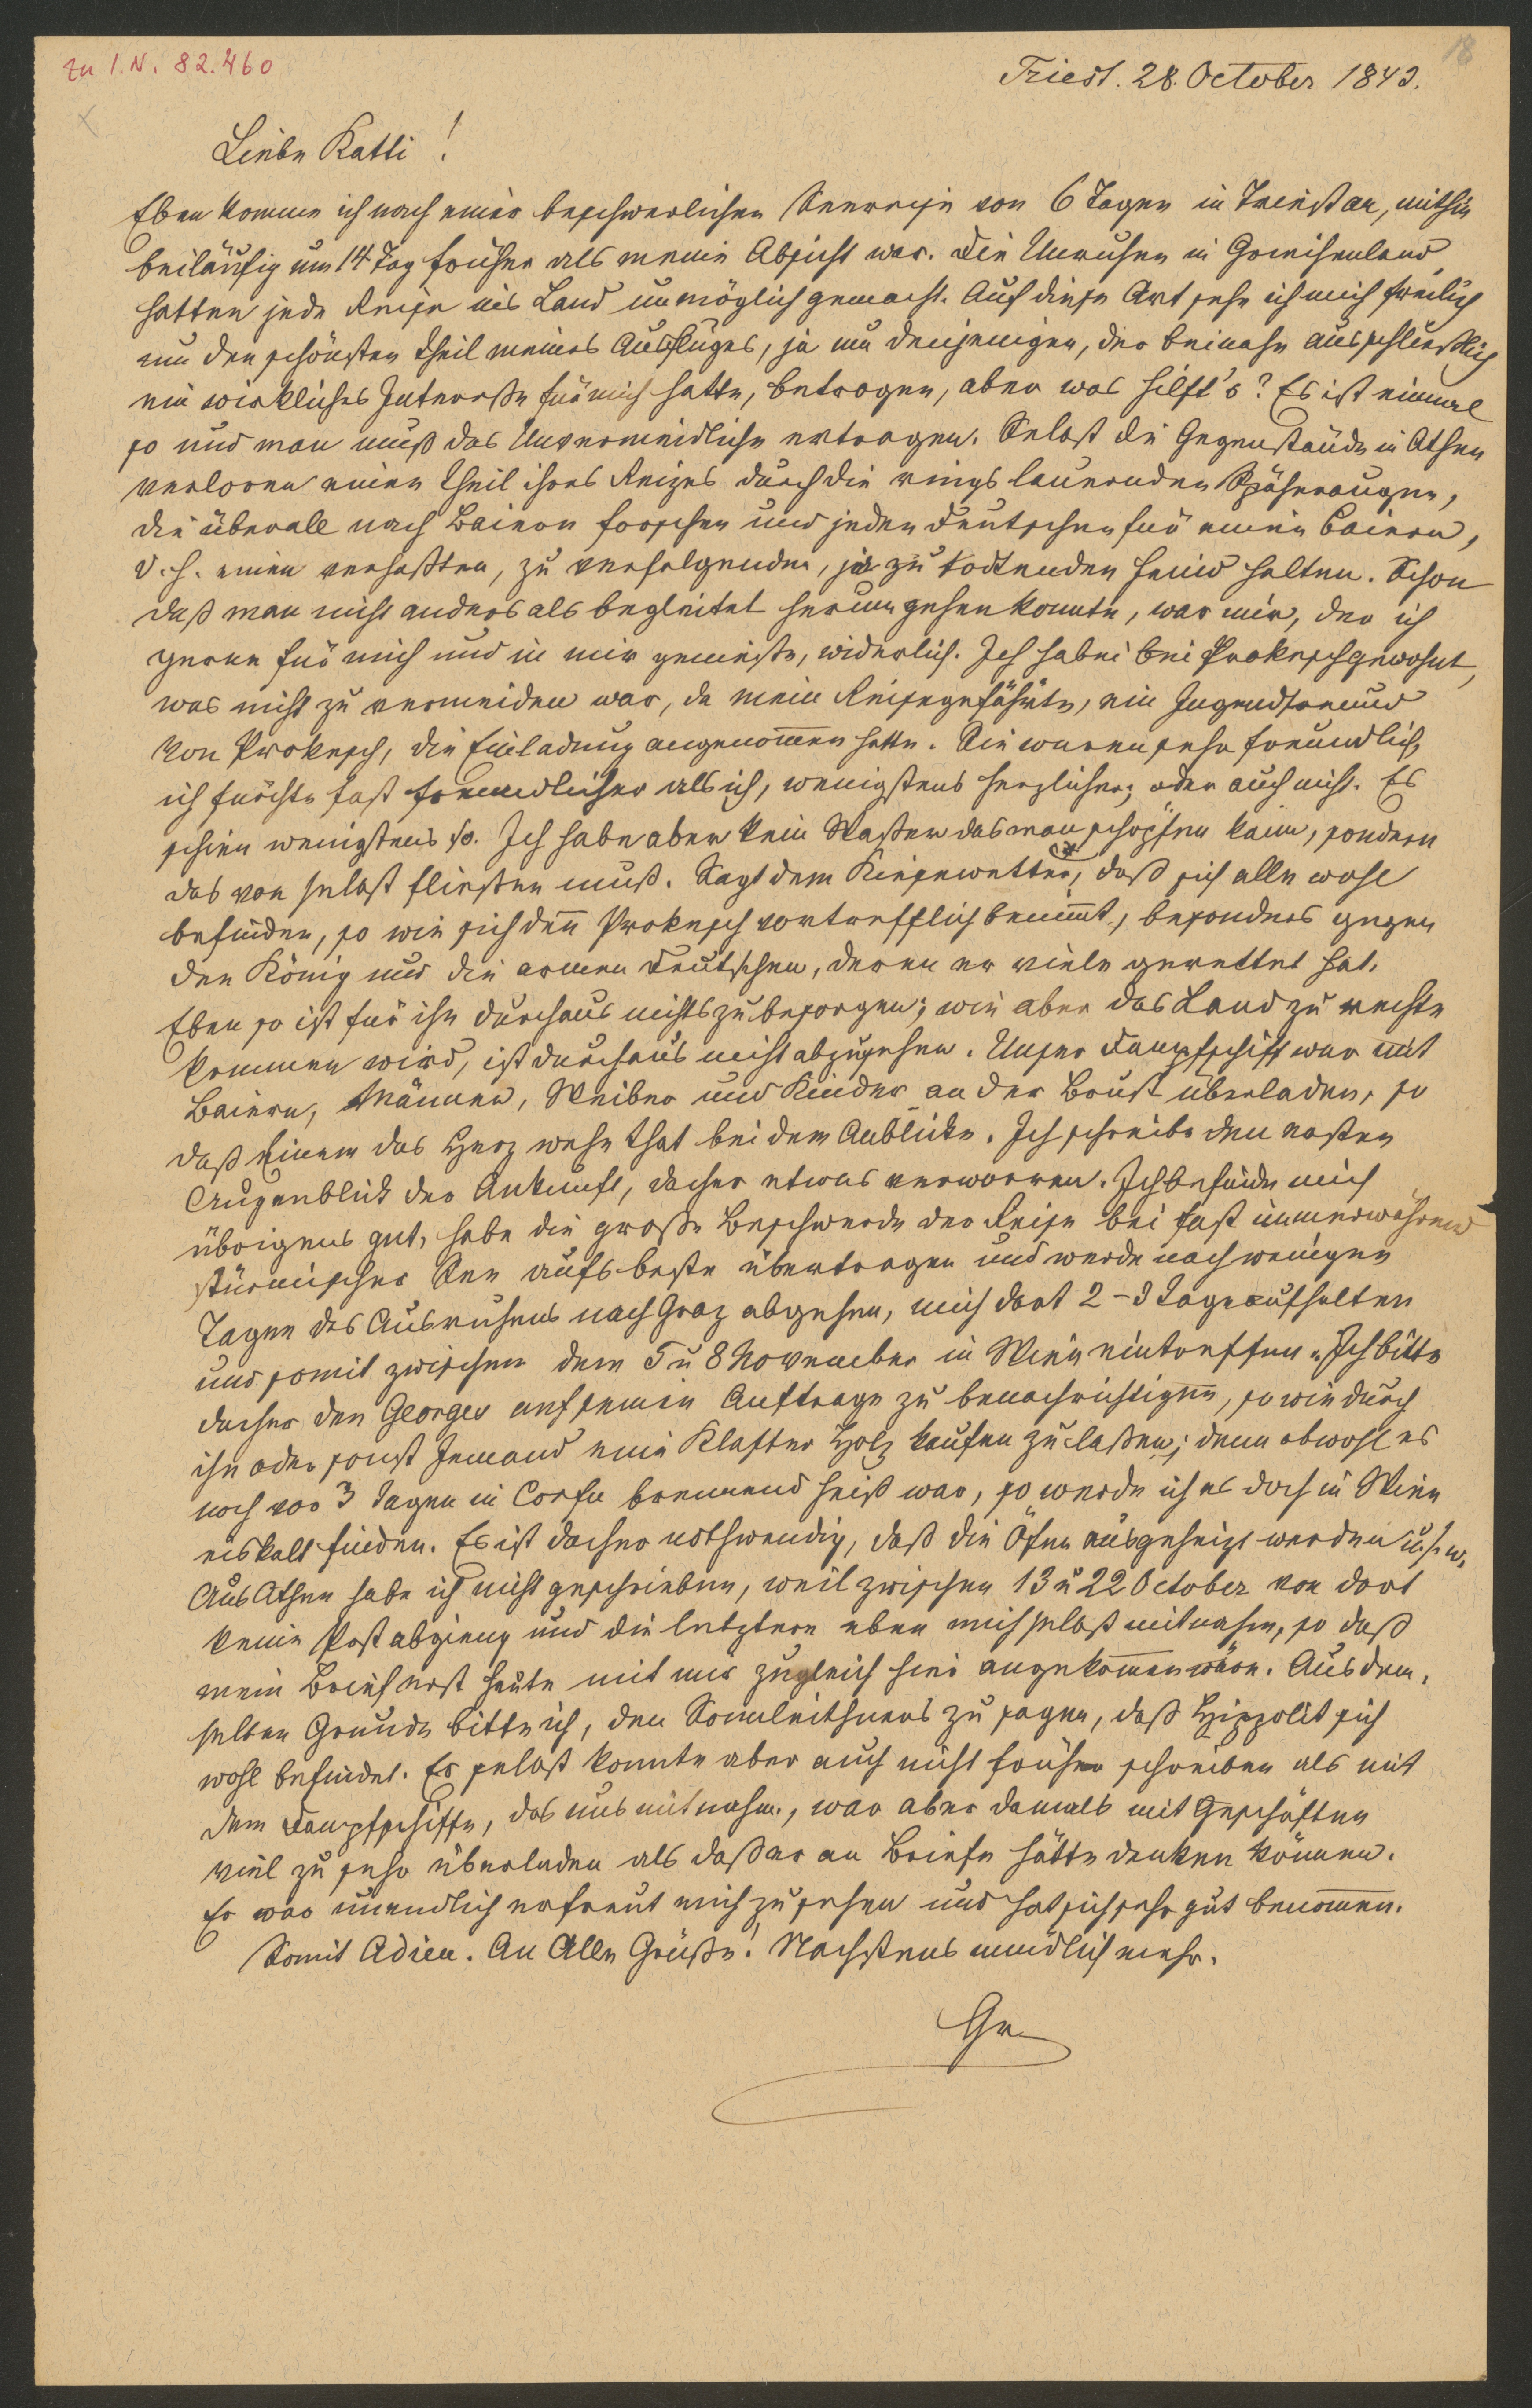 zu I.N. 82.460
18
Triest. 28. October 1843.
Liebe Katti!
Eben komme ich nach einer beschwerlichen Seereise von 6 Tagen in Triest an, mithin
beiläufig um 14 Tag früher als meine Absicht war. Die Unruhen in Griechenland
hatten jede Reise ins Land unmöglich gemacht. Auf diese Art sehe ich mich freilich
um den schönsten Theil meines Ausfluges, ja um denjenigen, der beinahe ausschließlich
ein wirkliches Interesse für mich hatte, betrogen, aber was hilft's? Es ist einmal
so und man muß das Unvermeidliche ertragen. Selbst die Gegenstände in Athen
verloren einen Theil ihres Reizes durch die rings lauernden Späheraugen,
die überall nach Baiern forschen und jeden Deutschen für einen Baiern,
d.h. einen verhaßten, zu verfolgenden, ja zu todtenden Feind halten. Schon
daß man nicht anders als begleitet herumgehen konnte, war mir, der ich
gerne für mich und in mir genieße, widerlich. Ich habe bei Prokesch gewohnt,
was nicht zu vermeiden war, da mein Reisegefährte, ein Jugendfreund
von Prokesch, die Einladung angenommen hatte. Sie waren sehr freundlich,
ich fürchte fast freundlicher als ich, wenigstens herzlicher; oder auch nicht. Es
schien wenigstens so. Ich habe aber kein Wasser das man schöpfen kann, sondern
das von selbst fließen muß. Sagt dem Kiesewetter, daß sich alle wohl
befinden, so wie sich denn Prokesch vortrefflich benimmt, besonders gegen
den König und die armen Deutschen, deren er viele gerettet hat.
Eben so ist für ihn durchaus nichts zu besorgen; wie aber das Land zu rechte
kommen wird, ist durchaus nicht abzusehen. Unser Dampfschiff war mit
Baiern, Männer, Weiber und Kinder an der Brust überladen, so
daß Einem das Herz wehe that bei dem Anblicke. Ich schreibe den ersten
Augenblick der Ankunft, daher etwas verworren. Ich befinde mich
übrigens gut, habe die große Beschwerde der Reise bei fast immerwährend
stürmischer See aufs beste übertragen und werde nach wenigen
Tagen des Ausruhens nach Graz abgehen, mich dort 2–3 Tage aufhalten
und somit zwischen dem 5 u 8 November in Wien eintreffen. Ich bitte
daher den Georges auf seine Auftrage zu benachrichtigen, so wie durch
ihn oder sonst Jemand eine Klafter Holz kaufen zu laßen; denn obwohl es
noch vor 3 Tagen in Corfu brennend heiß war, so werde ich es doch in Wien
eiskalt finden. Es ist daher nothwendig, daß die Öfen ausgeheizt werden u.s.w.
Aus Athen habe ich nicht geschrieben, weil zwischen 13 u 22 October von dort
keine Post abgieng und die letztere eben mich selbst mitnahm, so daß
mein Brief erst heute mit mir zugleich hier angekommen wäre. Aus dem-
selben Grunde bitte ich, den Sonnleithners zu sagen, daß Hippolit sich
wohl befindet. Er selbst konnte aber auch nicht früher schreiben als mit
dem Dampfschiffe, das uns mitnahm, war aber damals mit Geschäften
viel zu sehr überladen als daß er an Briefe hätte denken können.
Er war unendlich erfreut mich zu sehen und hat sich sehr gut benommen.
Somit Adieu. An Alle Grüße! Nächstens mündlich mehr.
Gr.